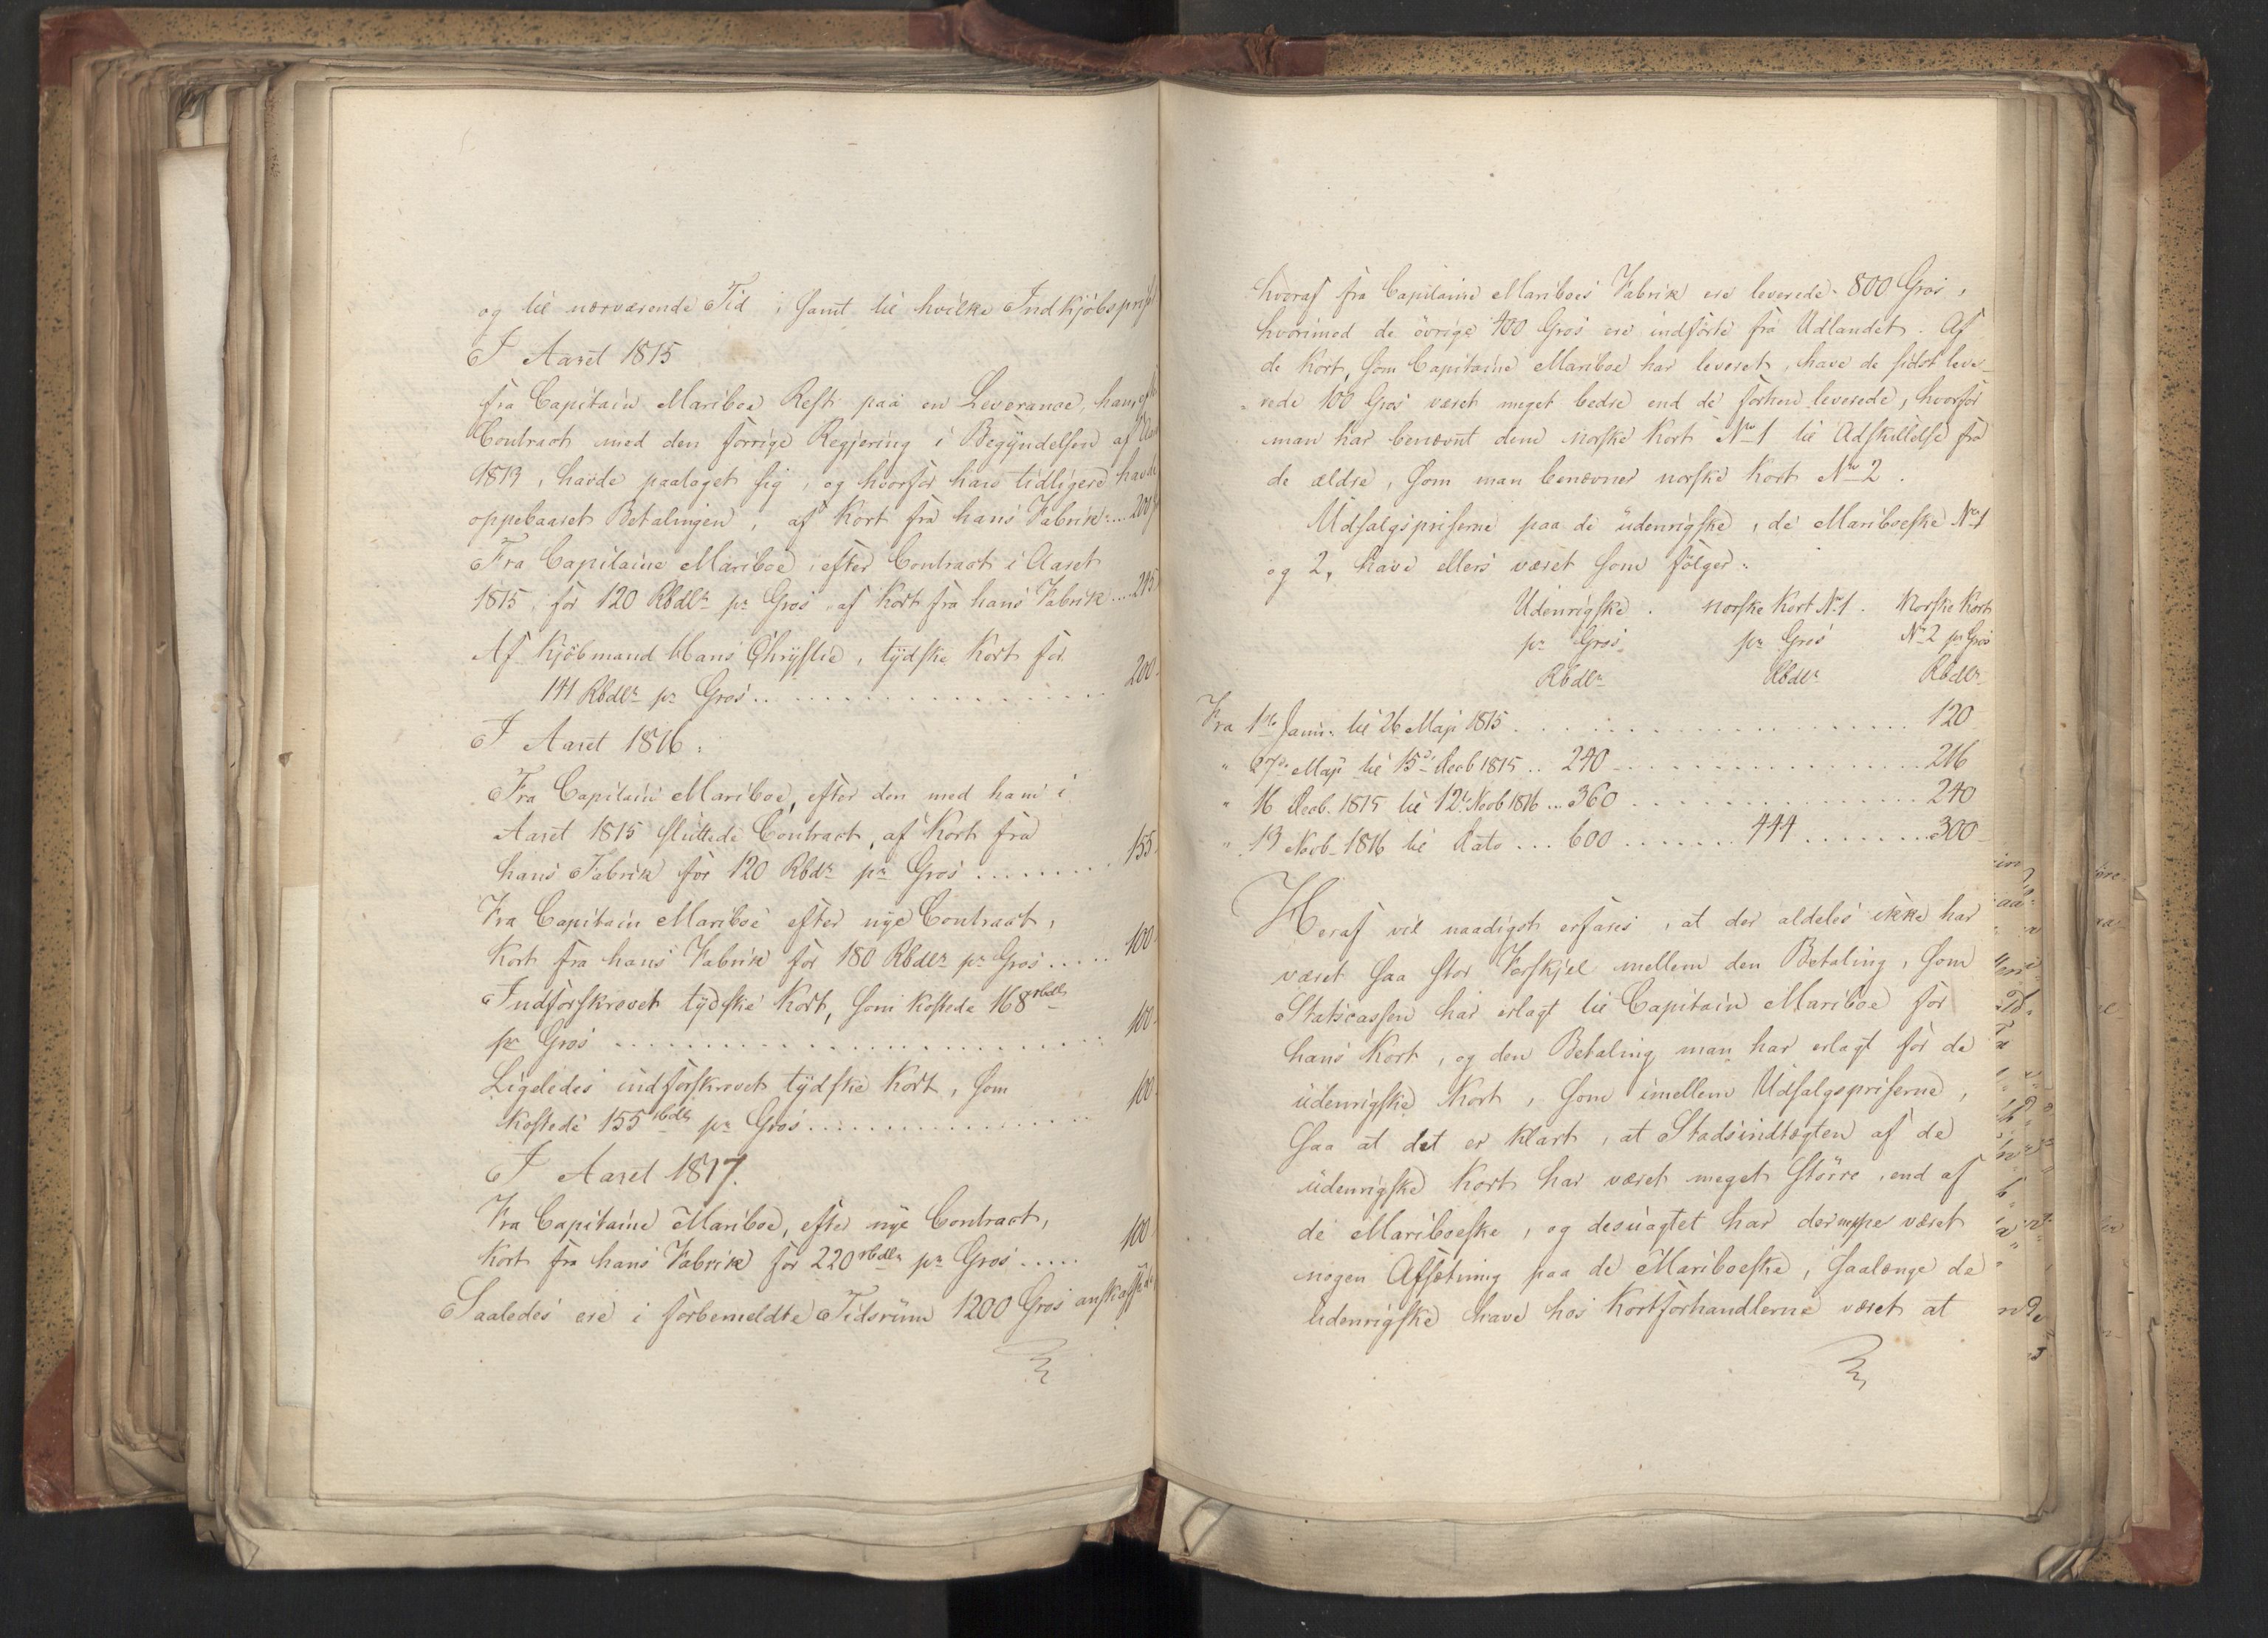 og til nærværende Tid; samt til hvilke Indkjöbspriser
I Aaret 1815
fra Capitain Mariboe Rest paa en Leverance, han efter
Contract med den forrige Regjering i Begyndelsen af Aaret
1813, havde paataget sig, og hvorfor han tidligere havde
oppebaaret Betalingen, af Kort fra hans Fabrik .... 200
Fra Capitaine Mariboe, efter Contract i Aaret
1815, for 120 Rbdlr pr Gros, af Kort fra hans Fabrik ... 245
Af Kjöbmand Hans Chrystie, tydske Kort for
141 Rbdlr pr Gros .. 200
I Aaret 1816:
Fra Capitain Mariboe, efter den med ham i
Aaret 1815 sluttede Contract, af Kort fra
hans Fabrik for 120 Rbdr pr Gros ........ 155
Fra Capitain Mariboe efter nye Contract,
Kort fra hans Fabrik for 180 Rbdlr pr Gros ..... 100
Indforskrevet tydske Kort, som kostede 168 rbdlr
pr Gros ........ 100
Ligeledes indforskrevet tydske Kort, som
kostede 155 rbdlr pr Gros ........ 100
I Aaret 1817.
Fra Capitaine Mariboe, efter nye Contract,
Kort fra hans Fabrik for 220 rbdlr pr Gros ..... 100
Saaledes ere i forbemeldte Tidsrum 1200 Gros anskaffede
hvoraf fra Capitaine Mariboes Fabrik ere leverede 800 Gros,
hvorimod de övrige 400 Gros ere indförte fra Udlandet. Af
de Kort, som Capitaine Mariboe har leveret, have de sidst leve-
rede 100 Gros været meget bedre end de forhen leverede, hvorfor
man har benævnt dem norske Kort No 1 til Adskillelse fra
de ældre, som man benævner norske Kort No 2.
Udsalgspriserne paa de udenrigske, de Mariboeske No 1
og 2, have ellers været som fölger:
Udenrigske. norske Kort No 1. Norske Kort
pr Gros. pr Gros No 2 pr Gros
Rbdlr Rbdlr Rbdlr
Fra 1ste Janu: til 26 Maji 1815 ........ 120
" 27de Maji til 15de Decb 1815 .. 240 ........ 216
" 16 Decb. 1815 til 12te Novb 1816 ... 360 ........ 240
" 13 Novb. 1816 til Dato ... 600 ....... 444 ........ 300
Heraf vil naadigst erfares, at der aldeles ikke har
været saa stor Forskjel mellem den Betaling, som
Statscassen har erlagt til Capitain Mariboe for
hans Kort, og den Betaling man har erlagt for de
udenrigske Kort, som imellem Udsalgspriserne,
saa at det er klart, at Stadsindtægten af de
udenrigske Kort har været meget större, end af
de Mariboeske, og desuagtet har der neppe været
nogen Afsætning paa de Mariboeske, saalænge de
udenrigske have hos Kortforhandlerne været at